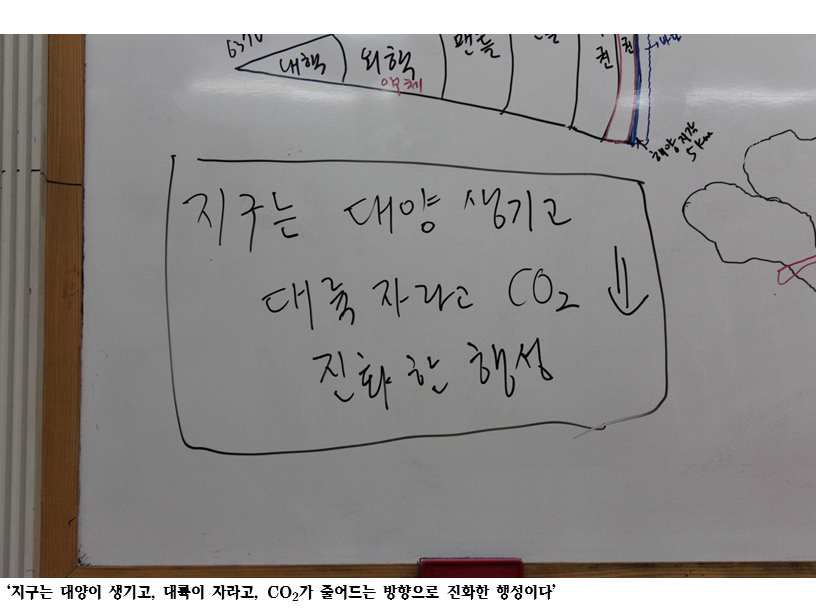 6370
내핵
외핵
액체
맨틀
권
권
해양지각
5km
지구는 대양 생기고
대륙 자라고 CO₂ ⇓
진화한 행성
‘지구는 대양이 생기고, 대륙이 자라고, CO₂가 줄어드는 방향으로 진화한 행성이다’